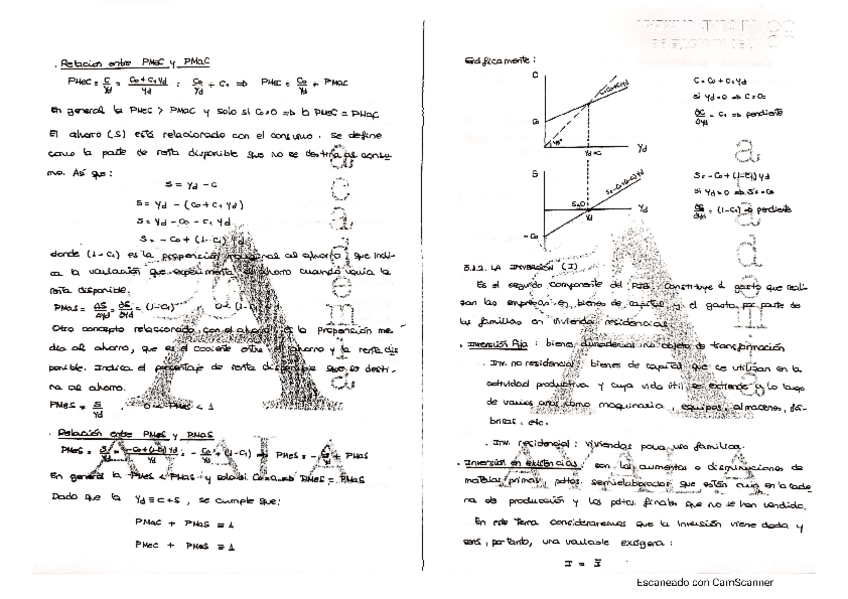 . Relacion entre PMeC y PMaC
PMeC = C/Yd = (Co+C1Yd)/Yd = Co/Yd + C1 ⇒ PMeC = Co/Yd + PMaC
En general la PMeC > PMaC y solo si Co=0 ⇒ la PMeC = PMaC
El ahorro (S) está relacionado con el consumo. Se define
como la parte de renta disponible que no se destina al consu-
mo. Así que:
S = Yd - C
S = Yd - (Co + C1 Yd)
S = Yd - Co - C1 Yd
S = - Co + (1 - C1) Yd
donde (1-C1) es la propensión marginal al ahorro, que indi-
ca la variación que experimenta el ahorro cuando varía la
renta disponible.
PMaS = ΔS/ΔYd = ∂S/∂Yd = (1-C1)
Otro concepto relacionado con el ahorro es la propensión me-
dia al ahorro, que es el cociente entre el ahorro y la renta dis
ponible. Indica el porcentaje de renta disponible que se desti-
na al ahorro.
PMeS = S/Yd , 0 < PMeS < 1
. Relación entre PMeS y PMaS
PMeS = S/Yd = (-Co+(1-C1)Yd)/Yd = - Co/Yd + (1-C1) ⇒ PMeS = - Co/Yd + PMaS
En general la PMeS < PMaS y solo si Co=0 ⇒ PMeS = PMaS
Dado que la Yd ≡ C+S, se cumple que:
PMaC + PMaS ≡ 1
PMeC + PMeS ≡ 1
Gráficamente:
C
C=Co+C1Yd
Co
45°
Yd=C
Yd
C = Co + C1Yd
si Yd=0 ⇒ C=Co
∂C/∂Yd = C1 ⇒ pendiente
S
S=-Co+(1-C1)Yd
S=0
Yd
Yd
-Co
S = -Co + (1-C1)Yd
si Yd=0 ⇒ S=-Co
∂S/∂Yd = (1-C1) ⇒ pendiente
3.1.2. LA INVERSIÓN (I)
Es el segundo componente del PIB. Constituye el gasto que reali-
zan las empresas en bienes de capital y el gasto por parte de
las familias en vivienda residencial.
. Inversión Fija : bienes duraderos no objeto de transformación
. Inv. no residencial : bienes de capital que se utilizan en la
actividad productiva y cuya vida útil se extiende a lo largo
de varios años como maquinaria, equipos, almacenes, fá-
bricas, etc.
. Inv. residencial : viviendas para uso familiar.
. Inversión en existencias : son los aumentos o disminuciones de
materias primas, pdtos. semielaborados que están aun en la cade
na de producción y los pdtos. finales que no se han vendido.
En este Tema consideraremos que la Inversión viene dada y
será, por tanto, una variable exógena :
I = Ī
academia
AULA
Escaneado con CamScanner